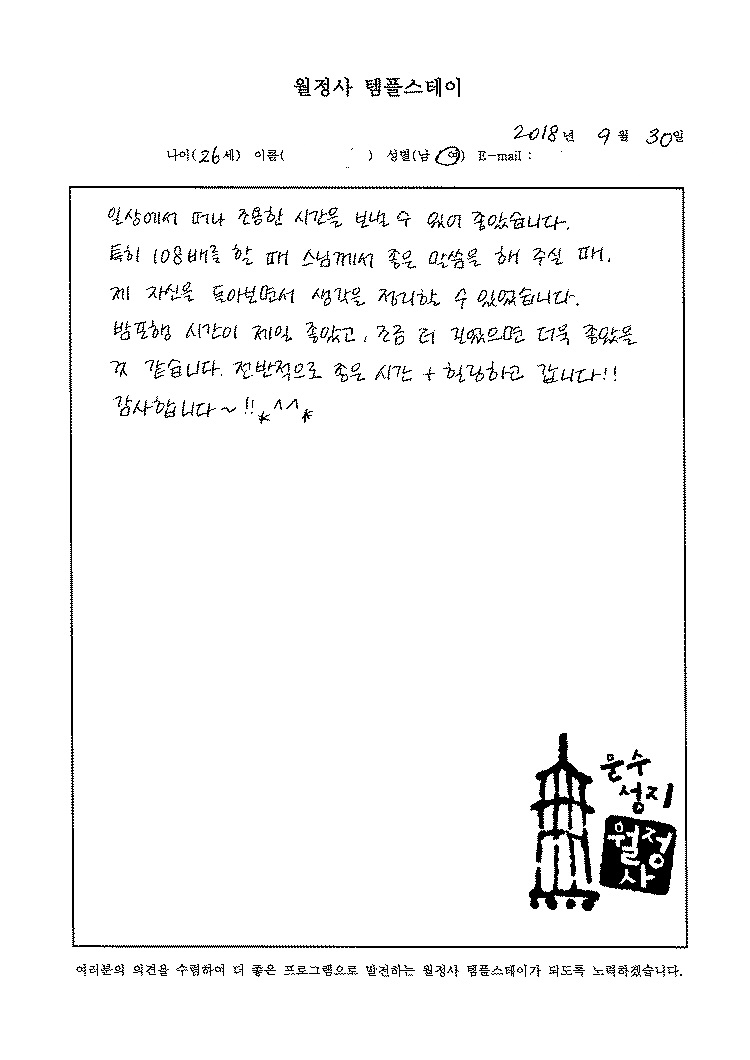 월정사 템플스테이
2018년 9월 30일
나이(26세) 이름( ) 성별(남 여) E-mail :
일상에서 떠나 조용한 시간을 보낼 수 있어 좋았습니다.
특히 108배를 할 때 스님께서 좋은 말씀을 해 주실 때,
제 자신을 돌아보면서 생각을 정리할 수 있었습니다.
밤포행 시간이 제일 좋았고, 조금 더 길었으면 더욱 좋았을
것 같습니다. 전반적으로 좋은 시간 + 힐링하고 갑니다!!
감사합니다~!! *^^*
문수
성지
월정
사
여러분의 의견을 수렴하여 더 좋은 프로그램으로 발전하는 월정사 템플스테이가 되도록 노력하겠습니다.